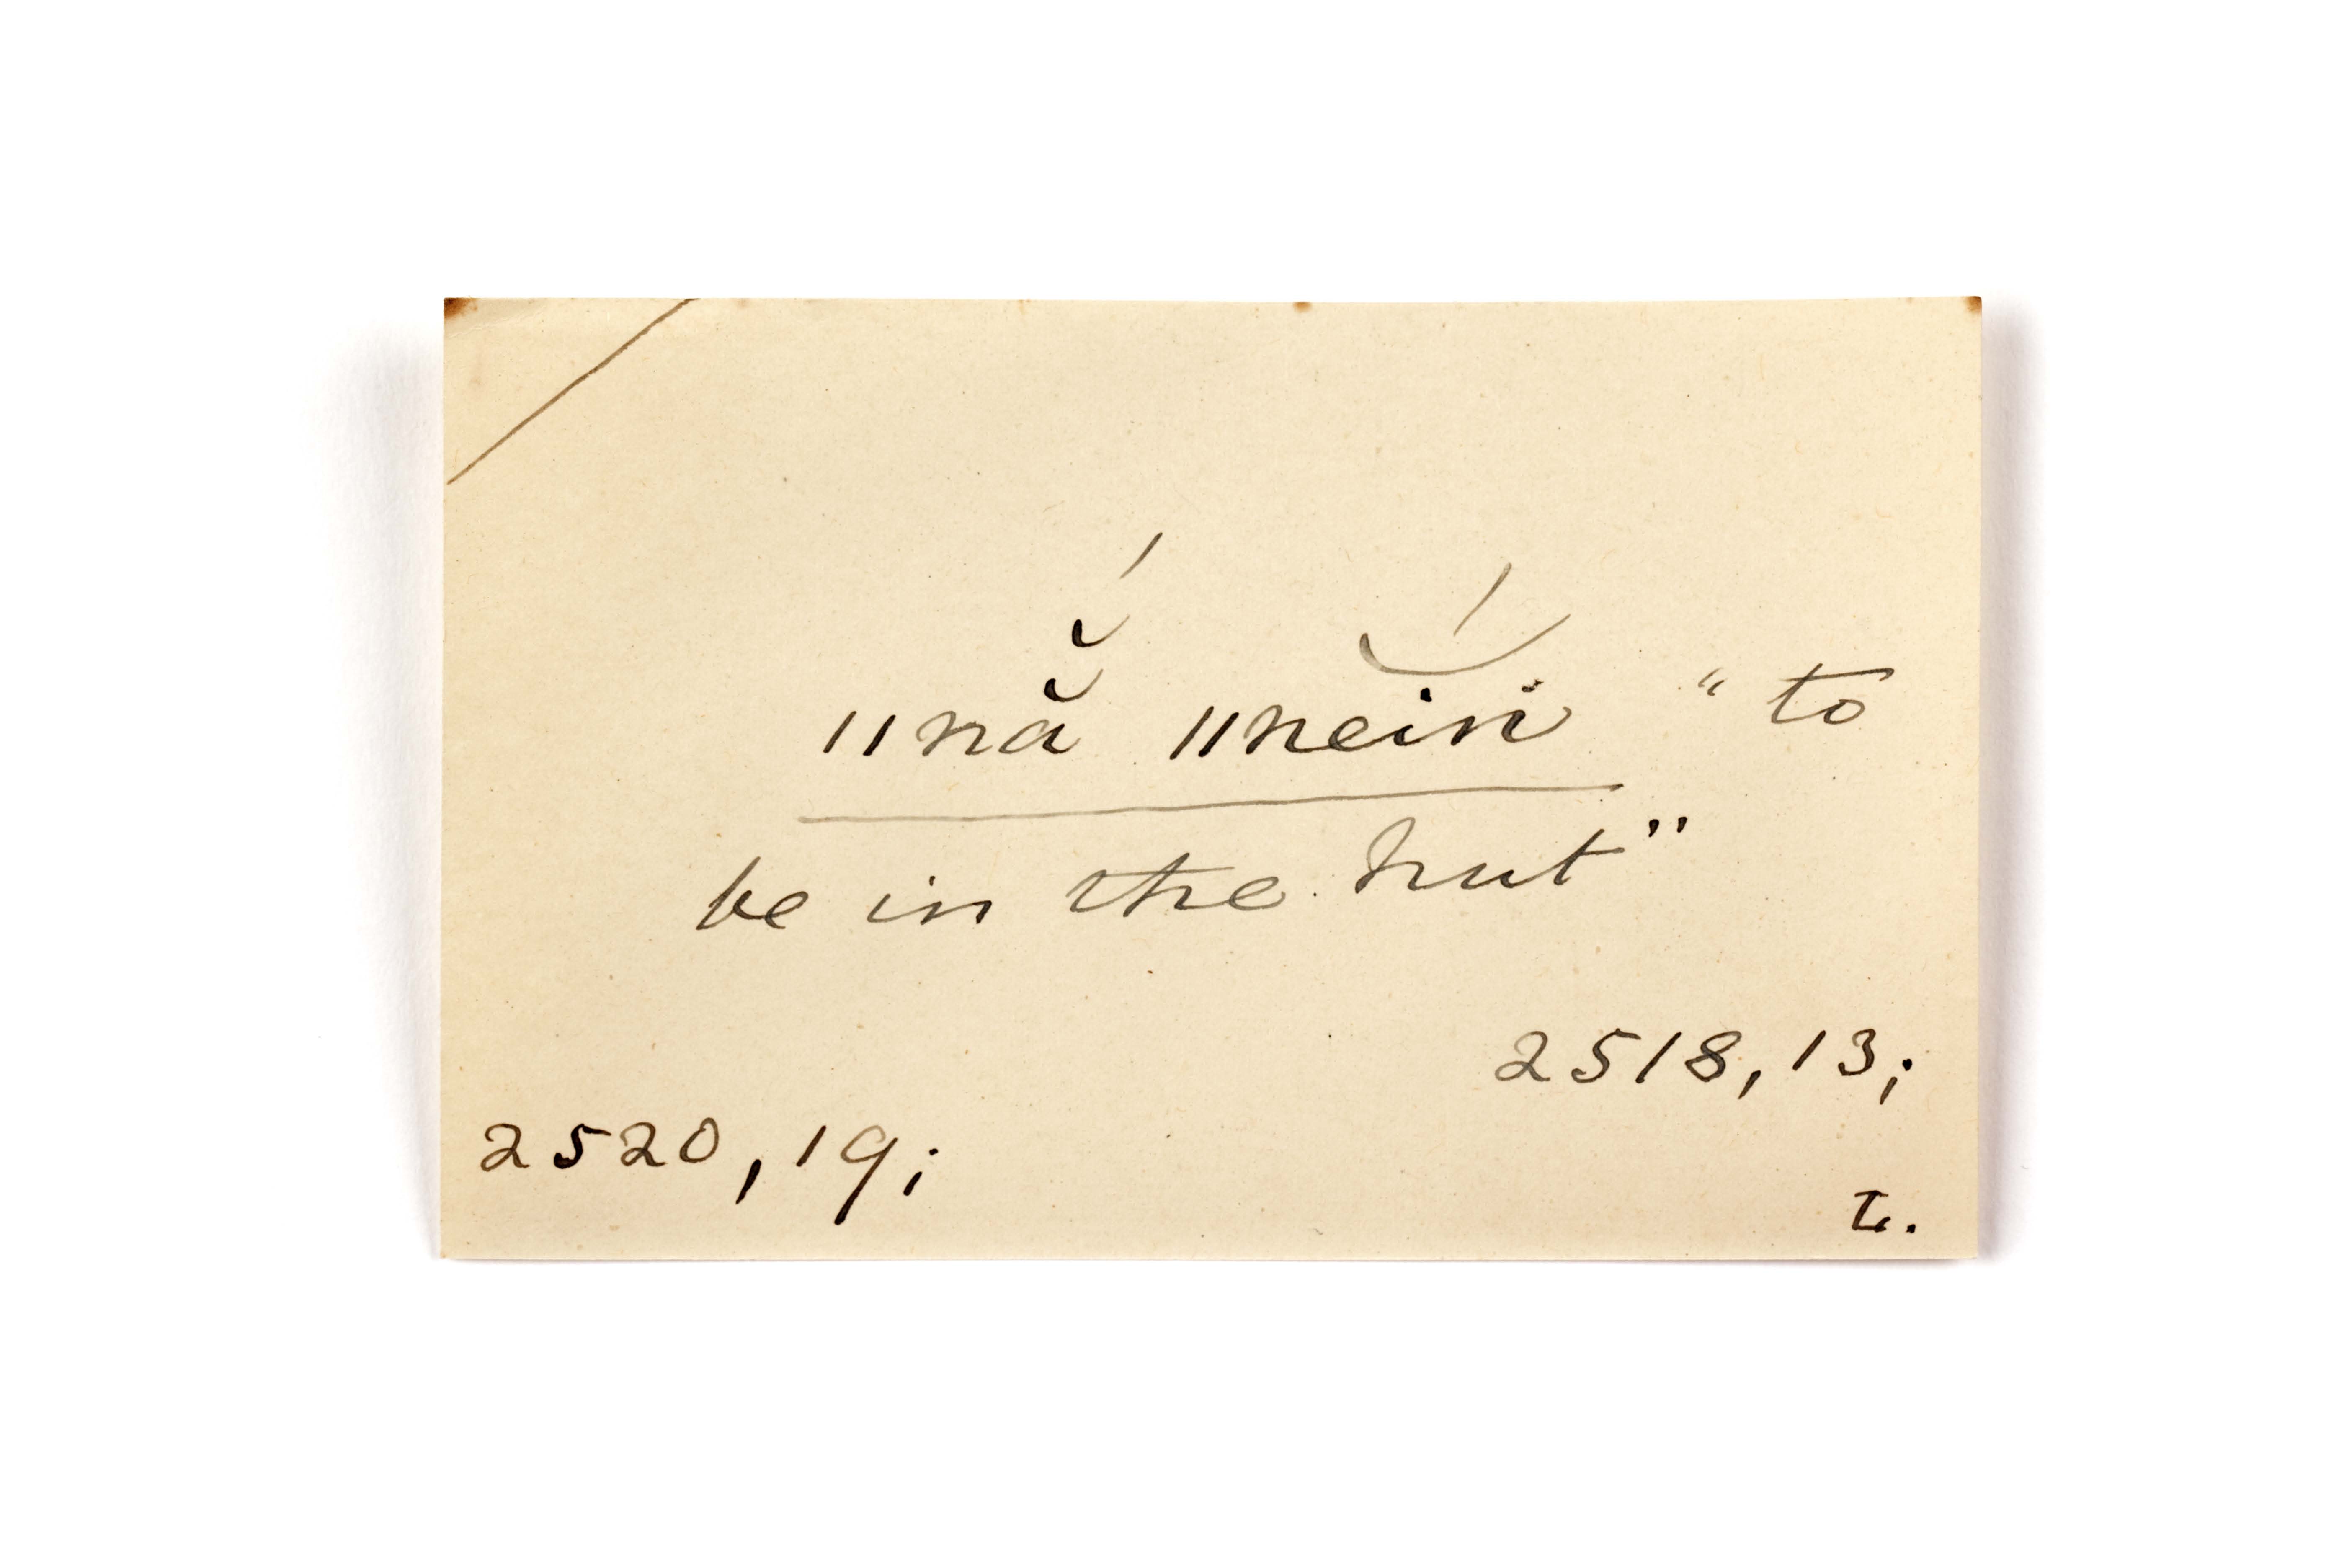 ǁnă̆́ ǁnĕ͝íṅ “to
be in the hut”
2518,13;
2520,19;
L.